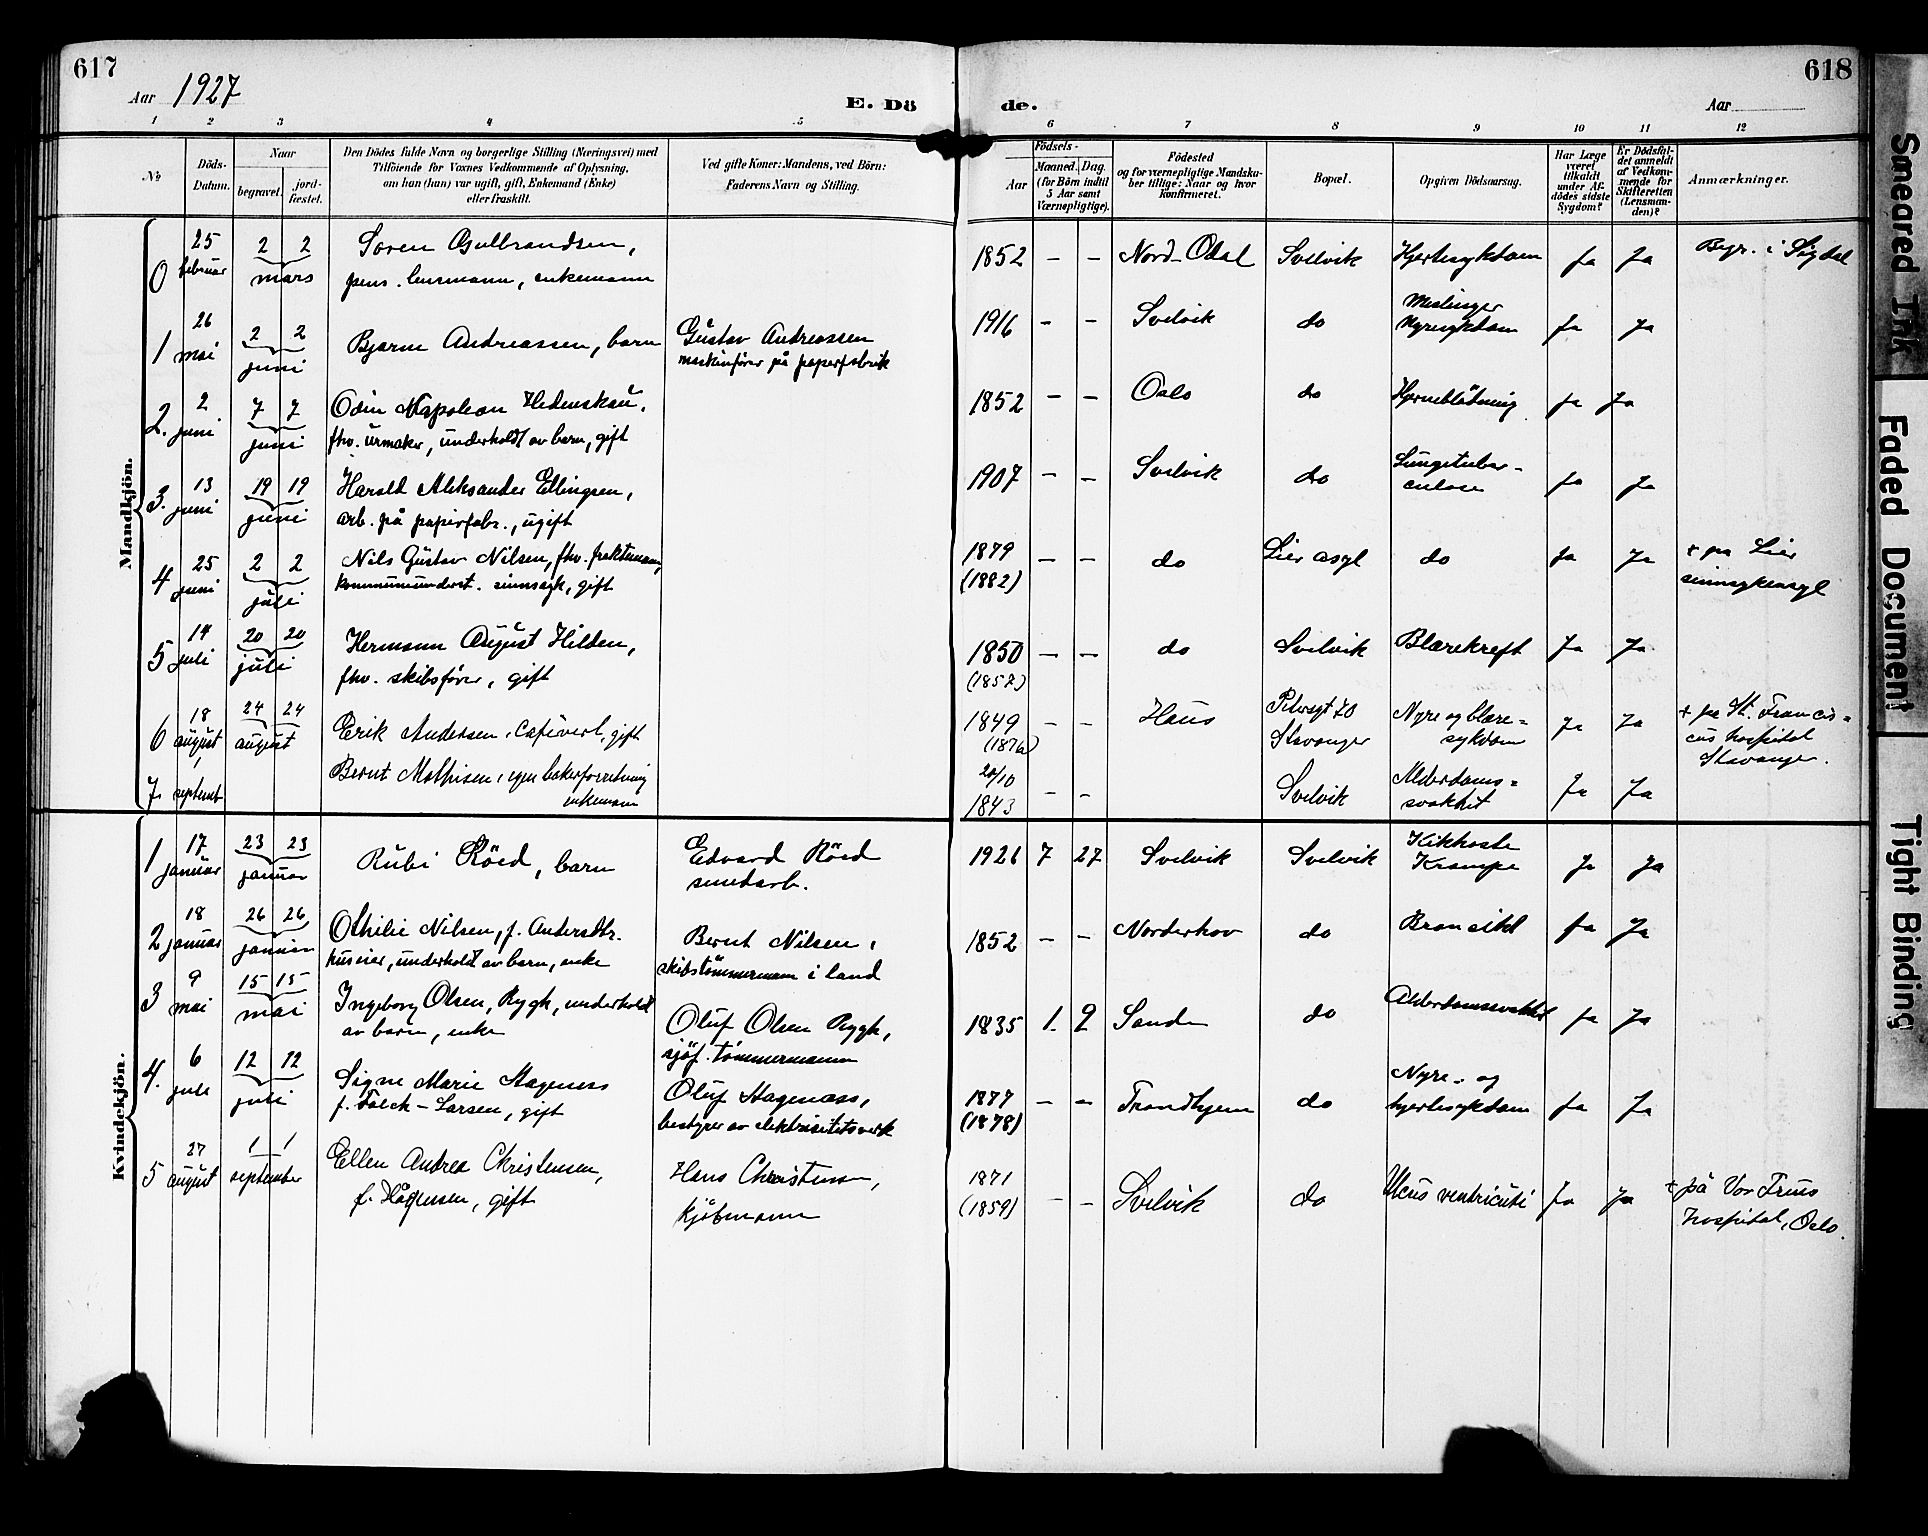 617
618
Aar 1927
E. Dö
de.
Aar
1 2 3 4 5 6 7 8 9 10 11 12
No
Döds-
Datum.
Naar
begravet.
jord-
fæstet.
Den Dödes fulde Navn og borgerlige Stilling (Næringsvei) med
Tilföiende for Voxnes Vedkommende af Oplysning,
om han (hun) var ugift, gift, Enkemand (Enke)
eller fraskilt.
Ved gifte Koner: Mandens, ved Börn:
Faderens Navn og Stilling.
Födsels-
Aar
Maaned.
Dag.
(for Börn indtil
5 Aar samt
Værnepligtige).
Födested
og for værnepligtige Mandska-
ber tillige: Naar og hvor
konfirmeret.
Bopæl.
Opgiven Dödsaarsag.
Har Læge
været
tilkaldt
under Af-
dödes sidste
Sygdom?
Er Dödsfal-
det anmeldt
af Vedkom-
mende for
Skifteretten
(Lensman-
den)?
Anmærkninger.
Mandkjön.
0 25 februar 2 2 mars Soren Gulbrandsen,
pens. lensmann, enkemann
1852 - - Nord-Odal Svelvik Hjertesykdom Ja Ja Begr. i Sigdal
1 26 mai 2 2 juni Bjarne Andreassen, barn Gustav Andreassen
maskinfører på papirfabrik
1916 - - Svelvik do Meslinger
Nyresykdom Ja Ja
2. 2 juni 7 7 juni Odin Napoleon Hedenskau,
fhv. urmaker, underholdt av barn, gift
1852 - - Oslo do Hjerneblødning Ja Ja
3. 13 juni 19 19 juni Harald Aleksander Ellingsen,
arb. på papirfabr., ugift
1907 - - Svelvik do Lungetuber-
culose Ja Ja
4 25 juni 2 2 juli Nils Gustav Nilsen, fhv. fraktemann,
kommuneunderst. sinnsyk, gift
1879
(1882) - - do Lier asyl do Ja Ja + på Lier
sinnsykeasyl
5 14 juli 20 20 juli Hermann August Hilden,
fhv. skibsfører, gift
1850
(1852) - - do Svelvik Blærekreft Ja Ja
6 18 august 24 24 august Erik Andersen, Cafévert, gift
1849
(1876) - - Haus Pedersgt 70
Stavanger Nyre og blære-
sykdom Ja Ja + på St. Francis-
cus hospital
Stavanger.
7. septemt Bernt Mathisen, egen bakerforretning
enkemann
20/10
1843 - - Svelvik Alderdoms-
svakhet Ja Ja
Kvindekjön.
1 17 januar 23 23 januar Rubi Röed, barn Edvard Röed
smedarb.
1926 7 27 Svelvik Svelvik Kikhoste
Krampe Ja Ja
2 18 januar 26 26 januar Othilie Nilsen, f. Andersdtr.
huseier, underholdt av barn, enke Bernt Nilsen,
skibstömmermann i land
1852 - - Norderhov do Ja Ja
3 9 mai 15 15 mai Ingeborg Olsen, Rygh, underholdt
av barn, enke Oluf Olsen Rygh,
sjöf. tömmermann
1835 1 9 Sande do Alderdomssvakhet Ja Ja
4. 6 juli 12 12 juli Signe Marie Hagenæss
f. Falck-Larsen, gift Oluf Hagenæss,
bestyrer av elektrisitetsverk
1877
(1878) - - Trondhjem do Nyre- og
hjertesykdom Ja Ja
5 27 august 1 1 september Ellen Andrea Christensen,
f. Hågensen, gift Hans Christensen,
kjöbmann
1871
(1859) - - Svelvik do Ulcus ventriculi Ja Ja + på Vor Frues
hospital, Oslo.
Smeared Ink
Faded Document
Tight Binding